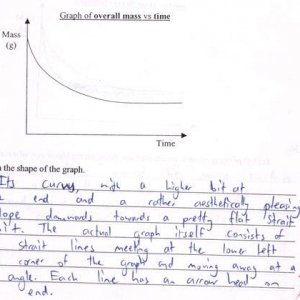 Graph of overall mass vs time
Mass
(g)
Time
the shape of the graph.
Its curvy, with a higher bit at
end and a rather aesthetically pleasing
lope downwards towards a pretty flat strait
it. The actual graph itself consists of
strait lines meeting at the lower left
corner of the graph and moving away at a
angle. Each line has an arrow head on
end.